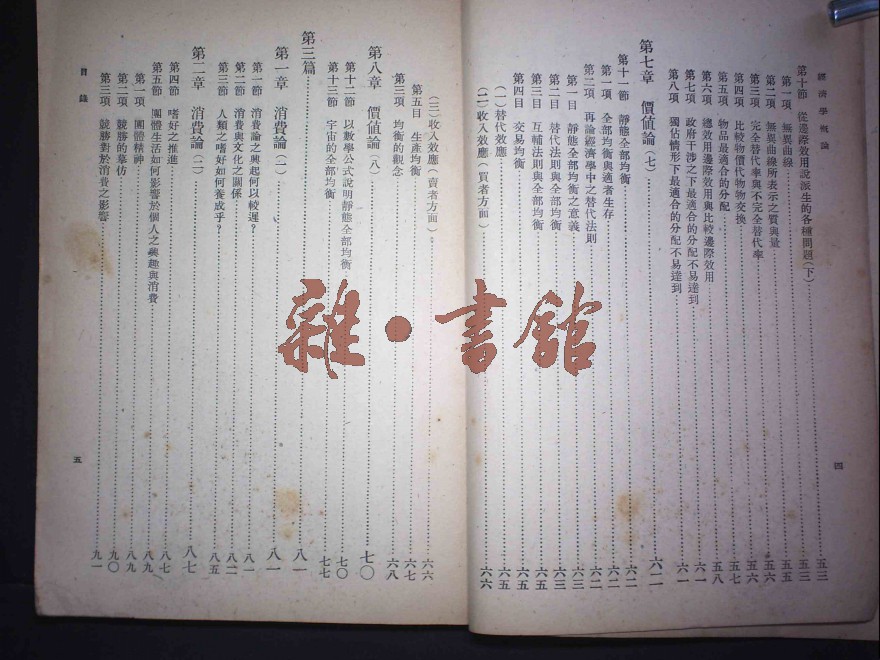 經濟學概論
第十節 從邊際效用說派生的各種問題(下)……五三
第一項 無異曲線……五五
第二項 無異曲線所表示之質與量……五五
第三項 完全替代率與不完全替代率……五六
第四項 比較物價代物物交換……五七
第五項 物品最適合的分配……五八
第六項 總效用邊際效用與比較邊際效用
第七項 政府干涉之下最適合的分配不易達到……六一
第八項 獨佔情形下最適合的分配不易達到……六一
第七章 價值論(七)……六二
第十一節 靜態全部均衡……六二
第一項 全部均衡與適者生存……六二
第二項 再論經濟學中之替代法則……六二
第一目 靜態全部均衡之意義……六三
第二目 替代法則與全部均衡……六三
第三目 互輔法則與全部均衡……六五
第四目 交易均衡……六五
(一)替代效應……六五
(二)收入效應(買者方面)……六六
四
(三)收入效應(賣者方面)……六六
第五目 生產均衡……六七
第三項 均衡的觀念……六八
第八章 價值論(八)……七〇
第十二節 以數學公式說明靜態全部均衡……七〇
第十三節 宇宙的全部均衡……七七
第三篇……八一
第一章 消費論(一)……八一
第一節 消費論之興起何以較遲?……八一
第二節 消費與文化之關係……八二
第三節 人類之嗜好如何養成乎?……八五
第二章 消費論(二)……八七
第四節 嗜好之推進……八七
第五節 團體生活如何影響於個人之興趣與消費……八九
第一項 團體精神……八九
第二項 競勝的摹仿……九〇
第三項 競勝對於消費之影響……九一
目錄
五
雜·書館